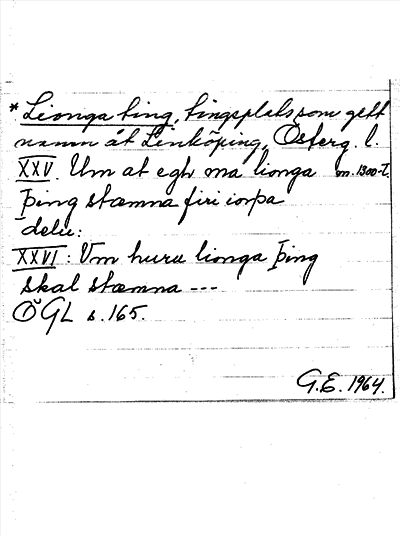 * Lionga ting, tingsplats som gett
namn åt Linköping, Österg. l.
XXV. Um at egh ma lionga m. 1300-t.
þing stæmna firi iorþa
delu:
XXVI: Vm huru lionga þing
skal stæmna ---
ÖGL s. 165.
G.E. 1964.